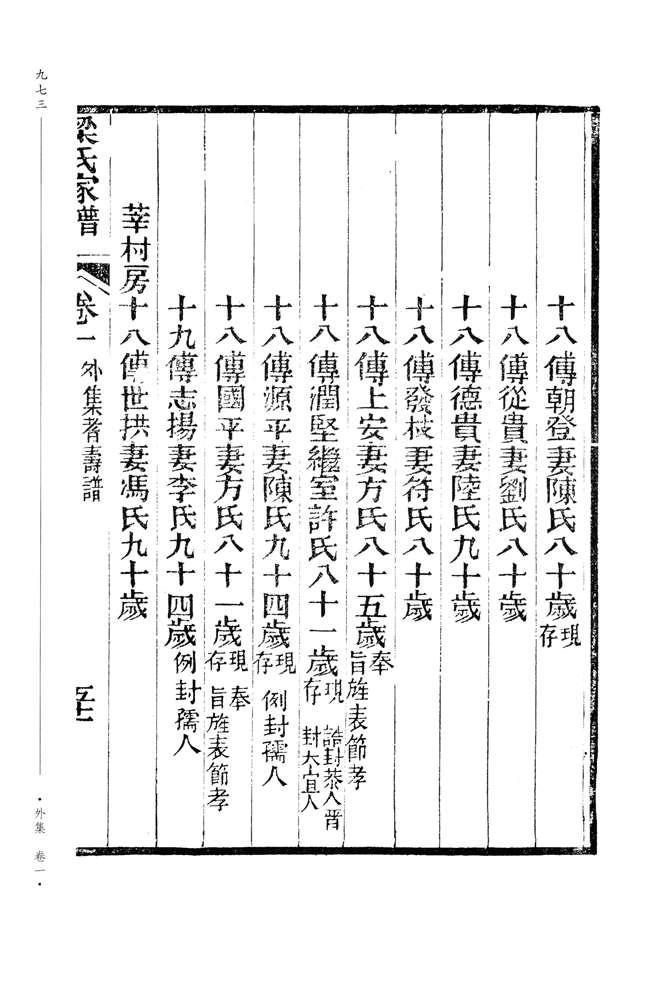 十八傳朝登妻陳氏八十歲現存
十八傳從貴妻劉氏八十歲
十八傳德貴妻陸氏九十歲
十八傳發枝妻符氏八十歲
十八傳上安妻方氏八十五歲奉旨旌表節孝
十八傳潤堅繼室許氏八十一歲現存 誥封恭人晋封大宜人
十八傳源平妻陳氏九十四歲現存 例封孺人
十八傳國平妻方氏八十一歲現存 奉旨旌表節孝
十九傳志揚妻李氏九十四歲例封孺人
莘村房十八傳世拱妻馮氏九十歲
梁氏家譜 卷一 外集耆壽譜 五十一
九七三
·外集 卷一·